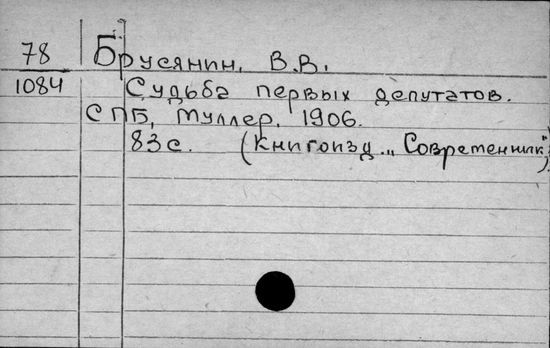 78 Брусянин, В.В.
1084 Судьба первых депутатов.
СПБ, Муллер, 1906.
83с. (Книгоизд. „Современник")